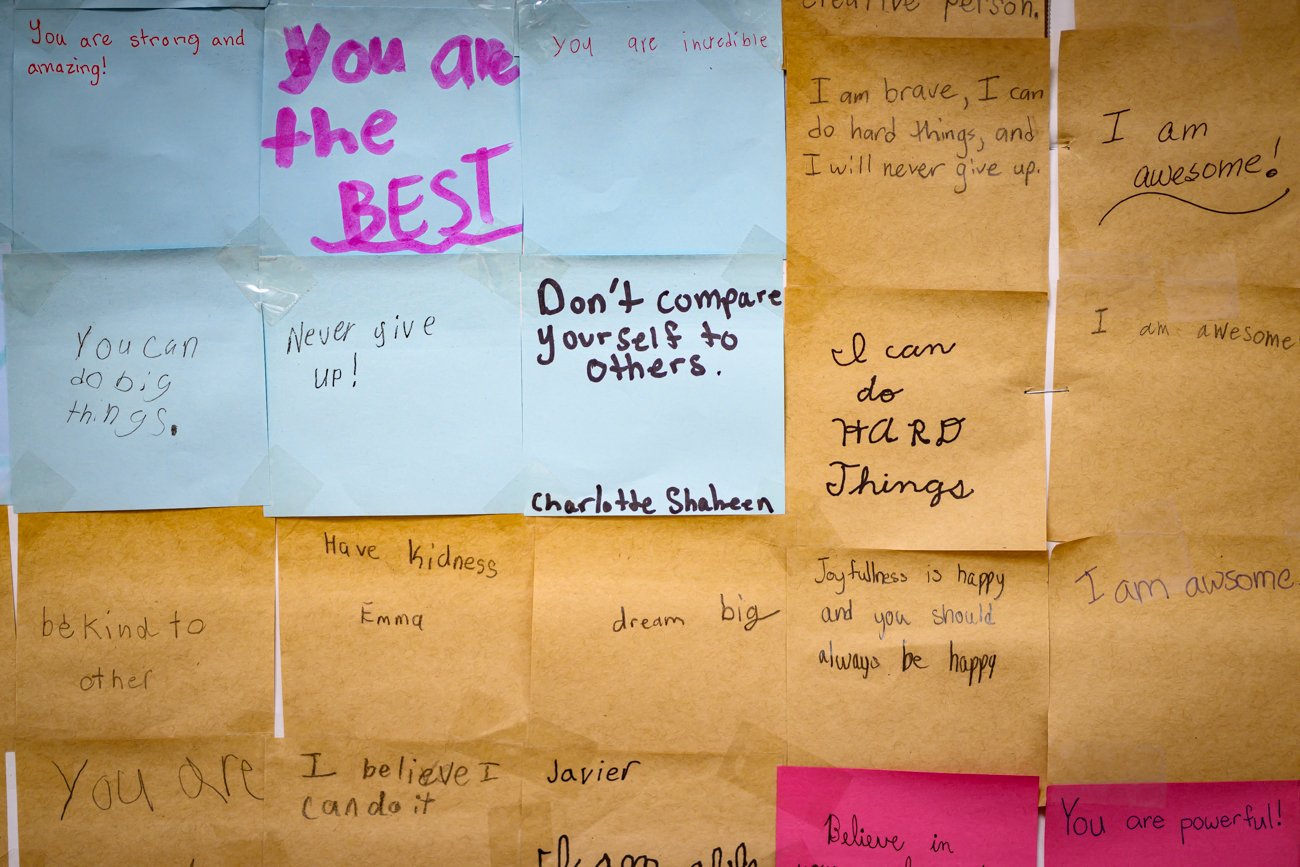 You are strong and
amazing!
You are
the
BEST
You are incredible
creative person.
I am brave, I can
do hard things, and
I will never give up.
I am
awesome!
You can
do big
things.
Never give
up!
Don't compare
yourself to
others.
Charlotte Shaheen
I can
do
HARD
Things
I am awesome
be kind to
other
Have kidness
Emma
dream big
Joyfullness is happy
and you should
always be happy
I am awsome
You are
I believe I
can do it
Javier
I am
Believe in
You are powerful!